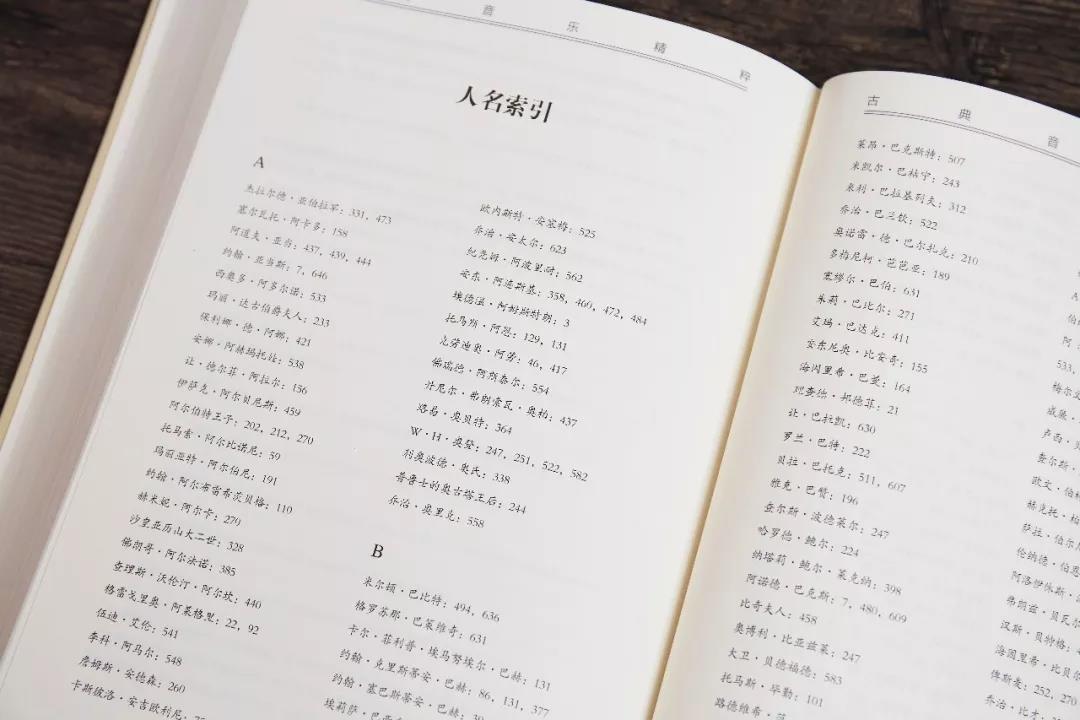 音 乐 精 粹
人名索引
A
杰拉尔德·亚伯拉罕：331，473
塞尔瓦托·阿卡多：158
阿道夫·亚当：437，439，444
约翰·亚当斯：7，646
西奥多·阿多尔诺：533
玛丽·达古伯爵夫人：233
保利娜·德·阿娜：421
安娜·阿赫玛托娃：538
让·德尔菲·阿拉尔：156
伊萨克·阿尔贝尼斯：459
阿尔伯特王子：202，212，270
托马索·阿尔比诺尼：59
玛丽亚特·阿尔伯尼：191
约翰·阿尔布雷希茨贝格：110
赫米妮·阿尔卡：270
沙皇亚历山大二世：328
佛朗哥·阿尔法诺：385
查理斯·沃伦汀·阿尔坎：440
格雷戈里奥·阿莱格里：22，92
伍迪·艾伦：541
李科·阿马尔：548
詹姆斯·安德森：260
卡斯彼洛·安吉欧利尼：
欧内斯特·安塞梅：525
乔治·安太尔：623
纪尧姆·阿波里耐：562
安东·阿连斯基：358，460，472，484
埃德温·阿姆斯特朗：3
托马斯·阿恩：129，131
克劳迪奥·阿劳：46，417
佛瑞德·阿斯泰尔：554
丹尼尔·弗朗索瓦·奥柏：437
路易·奥贝特：364
W·H·奥登：247，251，522，582
利奥波德·奥氏：338
普鲁士的奥古塔王后：244
乔治·奥里克：558
B
米尔顿·巴比特：494，636
格罗苏那·巴策维奇：631
卡尔·菲利普·埃马努埃尔·巴赫：131
约翰·克里斯蒂安·巴赫：86，131，377
约翰·塞巴斯蒂安·巴赫：
埃莉萨·
古 典 音
莱昂·巴克斯特：507
米凯尔·巴枯宁：243
米利·巴拉基列夫：312
乔治·巴兰钦：522
奥诺雷·德·巴尔扎克：210
多梅尼柯·芭芭亚：189
塞缪尔·巴伯：631
朱莉·巴比尔：271
艾玛·巴达克：411
安东尼奥·比安哥：155
海因里希·巴曼：164
班查德·邦德菲：21
让·巴拉凯：630
罗兰·巴特：222
贝拉·巴托克：511，607
雅克·巴赞：196
查尔斯·波德莱尔：247
哈罗德·鲍尔：224
纳塔莉·鲍尔·莱克纳：398
阿诺德·巴克斯：7，480，609
比奇夫人：458
奥博利·比亚兹莱：247
大卫·贝德福德：583
托马斯·毕勒：101
路德维希·
A
伯
阿
533，
梅尔
威廉·
卢西·
查尔斯·
欧文·伯
赫克托·柏
萨拉·伯尔
伦纳德·伯恩
阿洛伊休斯·
弗朗兹·贝瓦尔
汉斯·贝特格：4
海因里希·比贝
俾斯麦：252，270
乔治·比才：